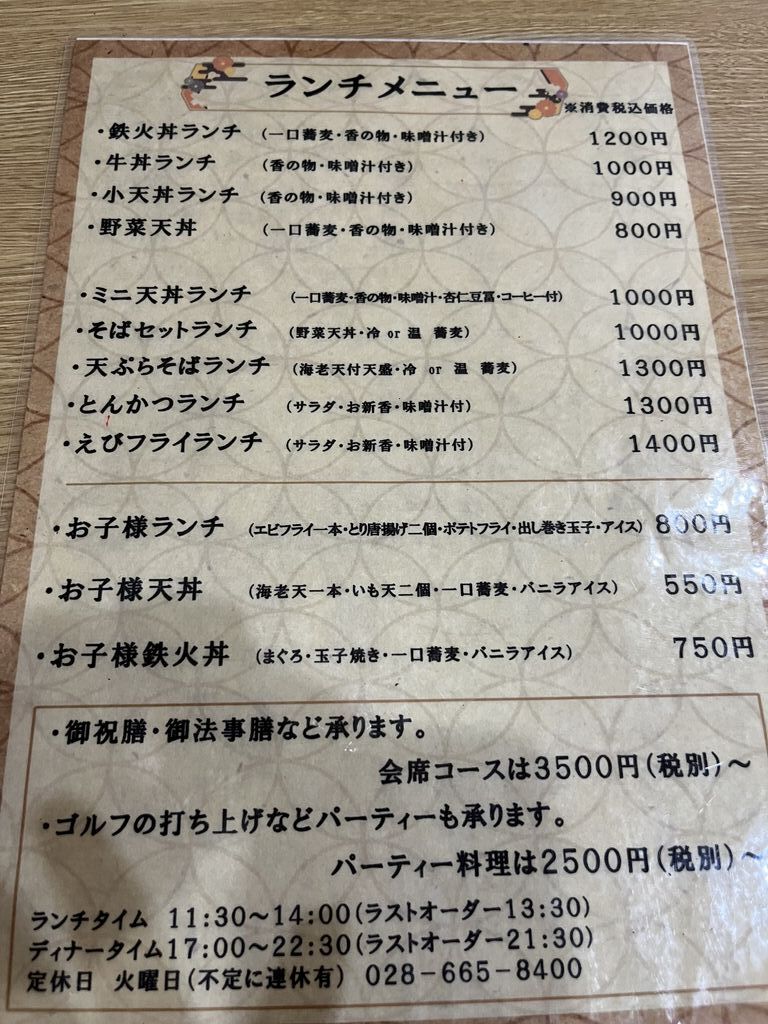 ランチメニュー
※消費税込価格
・鉄火丼ランチ (一口蕎麦・香の物・味噌汁付き) 1200円
・牛丼ランチ (香の物・味噌汁付き) 1000円
・小天丼ランチ (香の物・味噌汁付き) 900円
・野菜天丼 (一口蕎麦・香の物・味噌汁付き) 800円
・ミニ天丼ランチ (一口蕎麦・香の物・味噌汁・杏仁豆冨・コーヒー付) 1000円
・そばセットランチ (野菜天丼・冷 or 温 蕎麦) 1000円
・天ぷらそばランチ (海老天付天盛・冷 or 温 蕎麦) 1300円
・とんかつランチ (サラダ・お新香・味噌汁付) 1300円
・えびフライランチ (サラダ・お新香・味噌汁付) 1400円
・お子様ランチ (エビフライ一本・とり唐揚げ二個・ポテトフライ・出し巻き玉子・アイス) 800円
・お子様天丼 (海老天一本・いも天二個・一口蕎麦・バニラアイス) 550円
・お子様鉄火丼 (まぐろ・玉子焼き・一口蕎麦・バニラアイス) 750円
・御祝膳・御法事膳など承ります。
会席コースは3500円(税別)～
・ゴルフの打ち上げなどパーティーも承ります。
パーティー料理は2500円(税別)～
ランチタイム 11:30～14:00(ラストオーダー13:30)
ディナータイム17:00～22:30(ラストオーダー21:30)
定休日 火曜日(不定に連休有) 028－665－8400